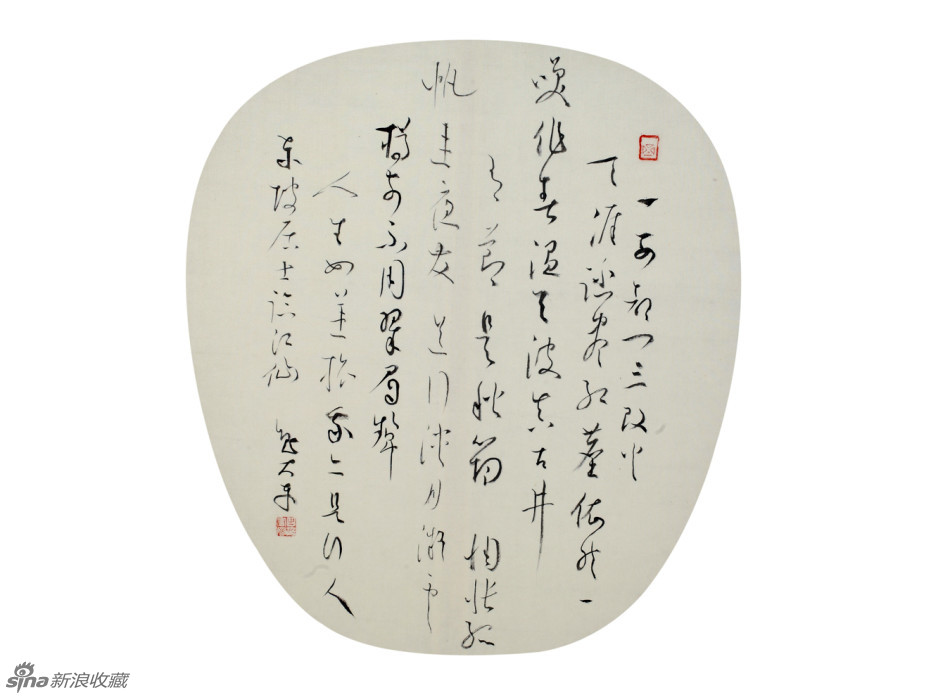 一別都門三改火
天涯踏盡紅塵依然一
笑作春溫無波真古井
有節是秋筠 惆悵孤
帆連夜發 送行淡月微雲
樽前不用翠眉顰
人生如逆旅 我亦是行人
東坡居士臨江仙
sina新浪收藏